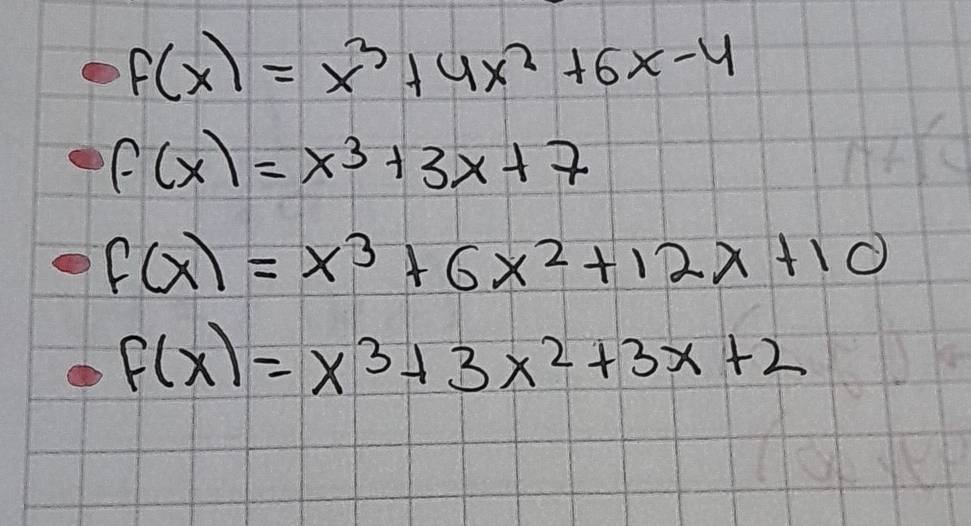 • f(x) = x³ + 4x² + 6x - 4
• f(x) = x³ + 3x + 7
• f(x) = x³ + 6x² + 12x + 10
• f(x) = x³ + 3x² + 3x + 2